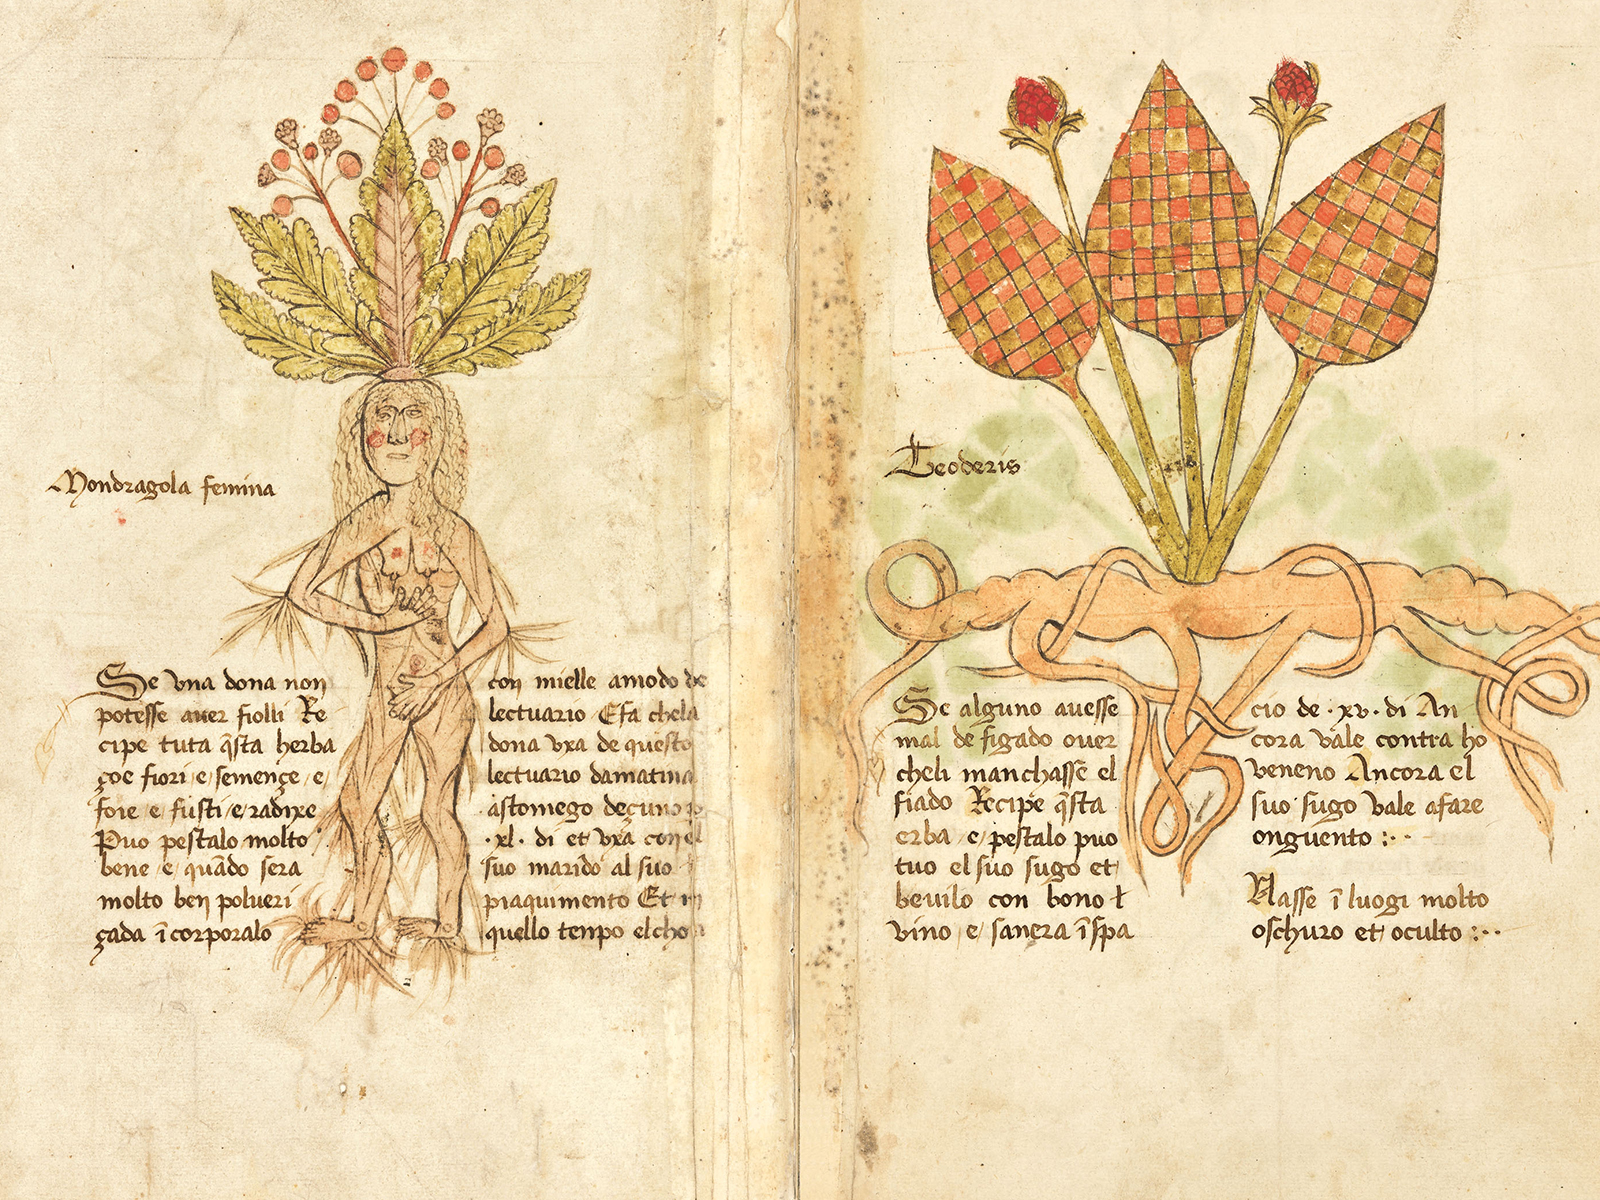 Mondragola femina
Se vna dona non
potesse auer fiolli Re
cipe tuta q̃sta herba
çoe fiori e semençe e
foie e fusti e radixe
Puo pestalo molto
bene e quãdo sera
molto ben polueri
çada ĩcorporalo
con mielle amodo de
lectuario Efa chela
dona vxa de questo
lectuario damatina
astomego deçuno
·xl· di et vxa con el
suo marido al suo
piaquimento Et
quello tenpo elcho
Teoderis
Se alguno auesse
mal de figado ouer
cheli manchasse el
fiado Recipe q̃sta
erba e pestalo puo
tuo el suo sugo et
beuilo con bono ł
vino e sanera ĩspa
cio de ·xv· di An
cora vale contra ho
veneno Ancora el
suo sugo vale afare
onguento :··
Nasse ĩ luogi molto
oschuro et oculto :··